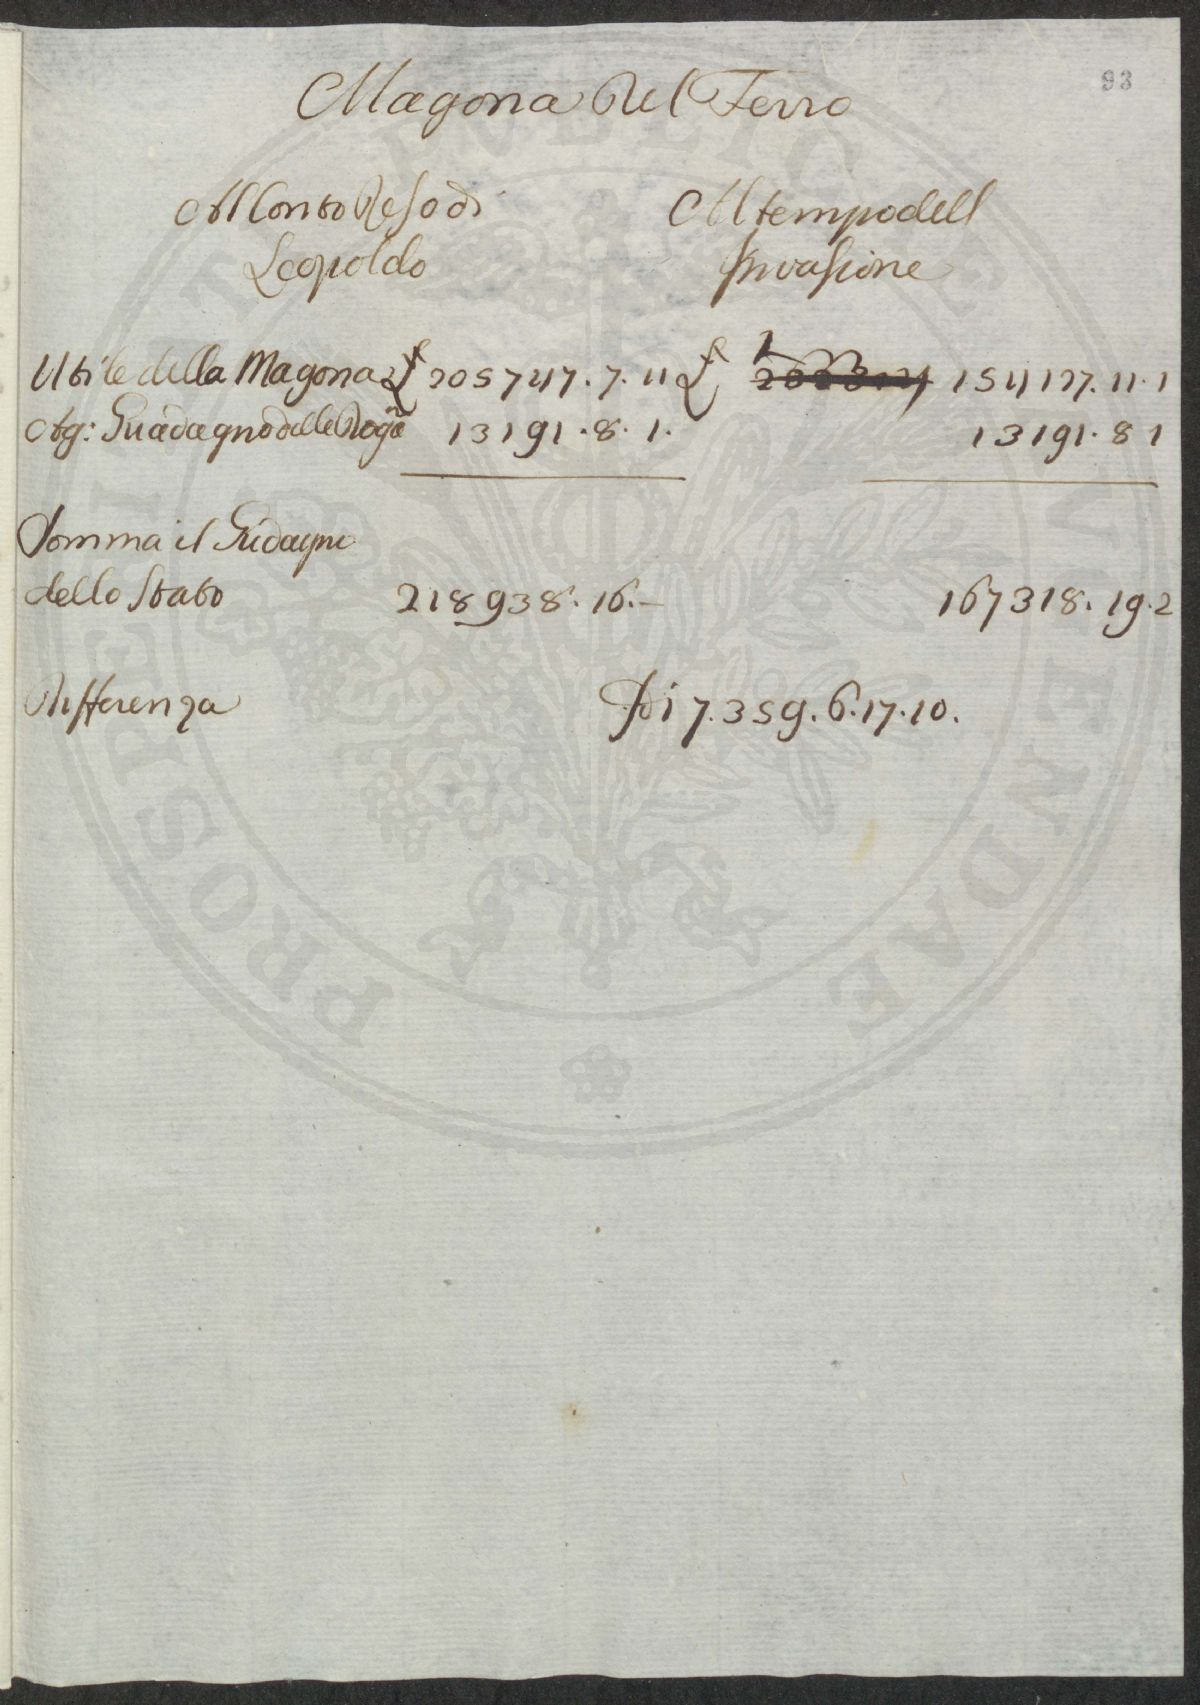 93
Magona Del Ferro
Al Conto Reso di
Leopoldo
Al tempo dell
Invasione
Utile della Magona £ 205747.7.11 £ 154127.11.1
Ag: Guadagno delle 13191.8.1. 13191.8 1
Somma il Guadagno
dello Stato 218938.16.— 167318.19.2
Differenza 7.359.6.17.10.